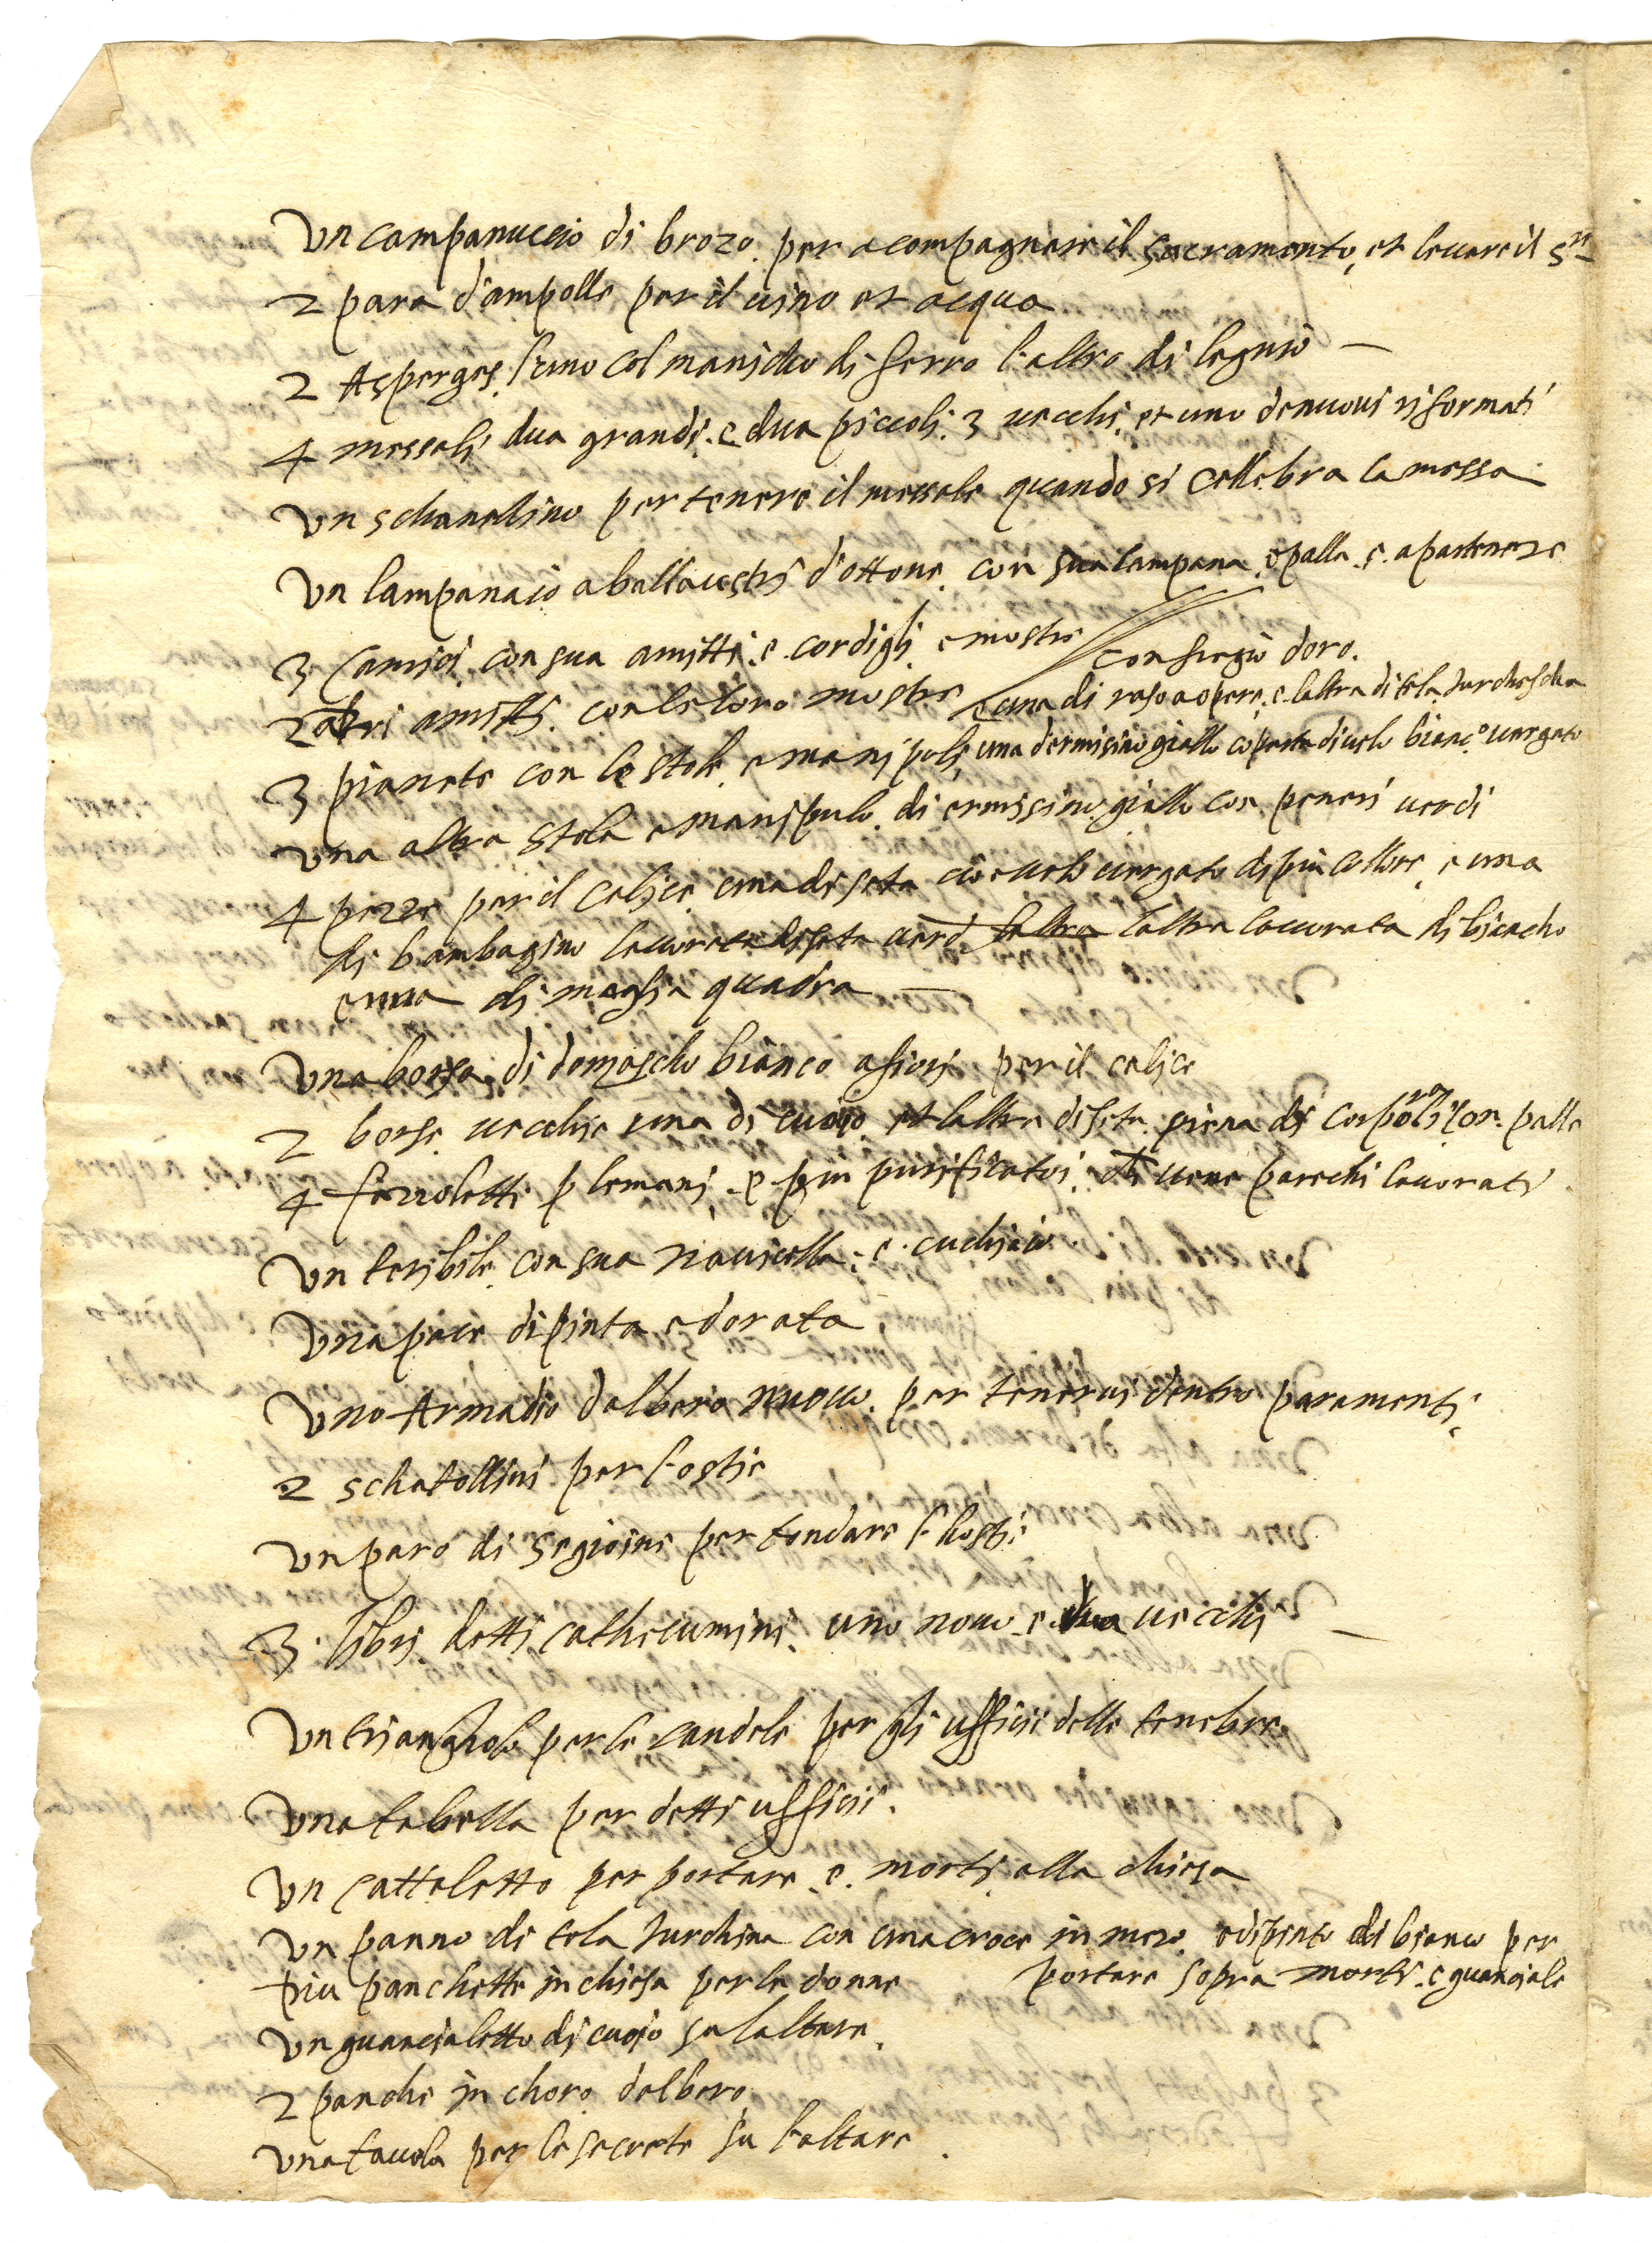 Un campanuccio di brozo. per acompagnare il sacramento, et levare il Sre
2 para d'ampolle per il vino et acqua
2 Asperges. l'uno col manicho di ferro l'altro di legnio —
4 messali dua grandi. e dua piccoli. 3 vecchi, et uno de nuovi riformati
Un schanellino per tenere il messale quando si cellebra la messa.
Un lampanaio a ballaustri d'ottone. con sua lampana. e palla. e. apartenenze
3 Camici. con sua amitti. e. cordigli. e mostre
con fregio d'oro.
2 altri amitti. con le loro mostre
3 pianete con le stole. e manipoli, una d'ermisino giallo coperta di velo bianco vergato
e una di raso a opere, e. l'altra di tela turchescha
Una altra stola e manipulo. di ermissino giallo con peneri verdi
4 pezze per il calice una di seta cioe velo vergato di piu collore, e una
di bambagino lavorata di seta verde laltra l'altra lavorata di biancho
e una di maglia quadra —
Una borsa. di domascho bianco a fiori per il calice
2 borse vecchie una di cuoio. et l'altra di seta. piena di corporali con. palle
4 fazzoletti p le mani, e. piu purificatoi. vene parechi lavorati
Un teribile. con sua navicella. e. cuchiaio
Una pace dipinta e dorata
Uno Armadio d'albero nuovo. per tenervi dentro paramenti,
2 schatollini per l'ostie
Un paro di segioine per tondare l'hosti
3 libri detti cathecumini. uno novo. e dua vecchi —
Un triangholo per le candele per gli uffitii delle tenebre
Una tabella per detti uffitii.
Un cattaletto per portare. e. morti. alla chiesa
Un panno di tela turchina con una croce in mezo. e dipinto di bianco per
portare sopra morti. e guanciale
Piu panchette in chiesa per le donne
Un guancialetto di cuoio su l'altare.
2 panche in choro d'albero
Una tavola per le secrete su l'altare.